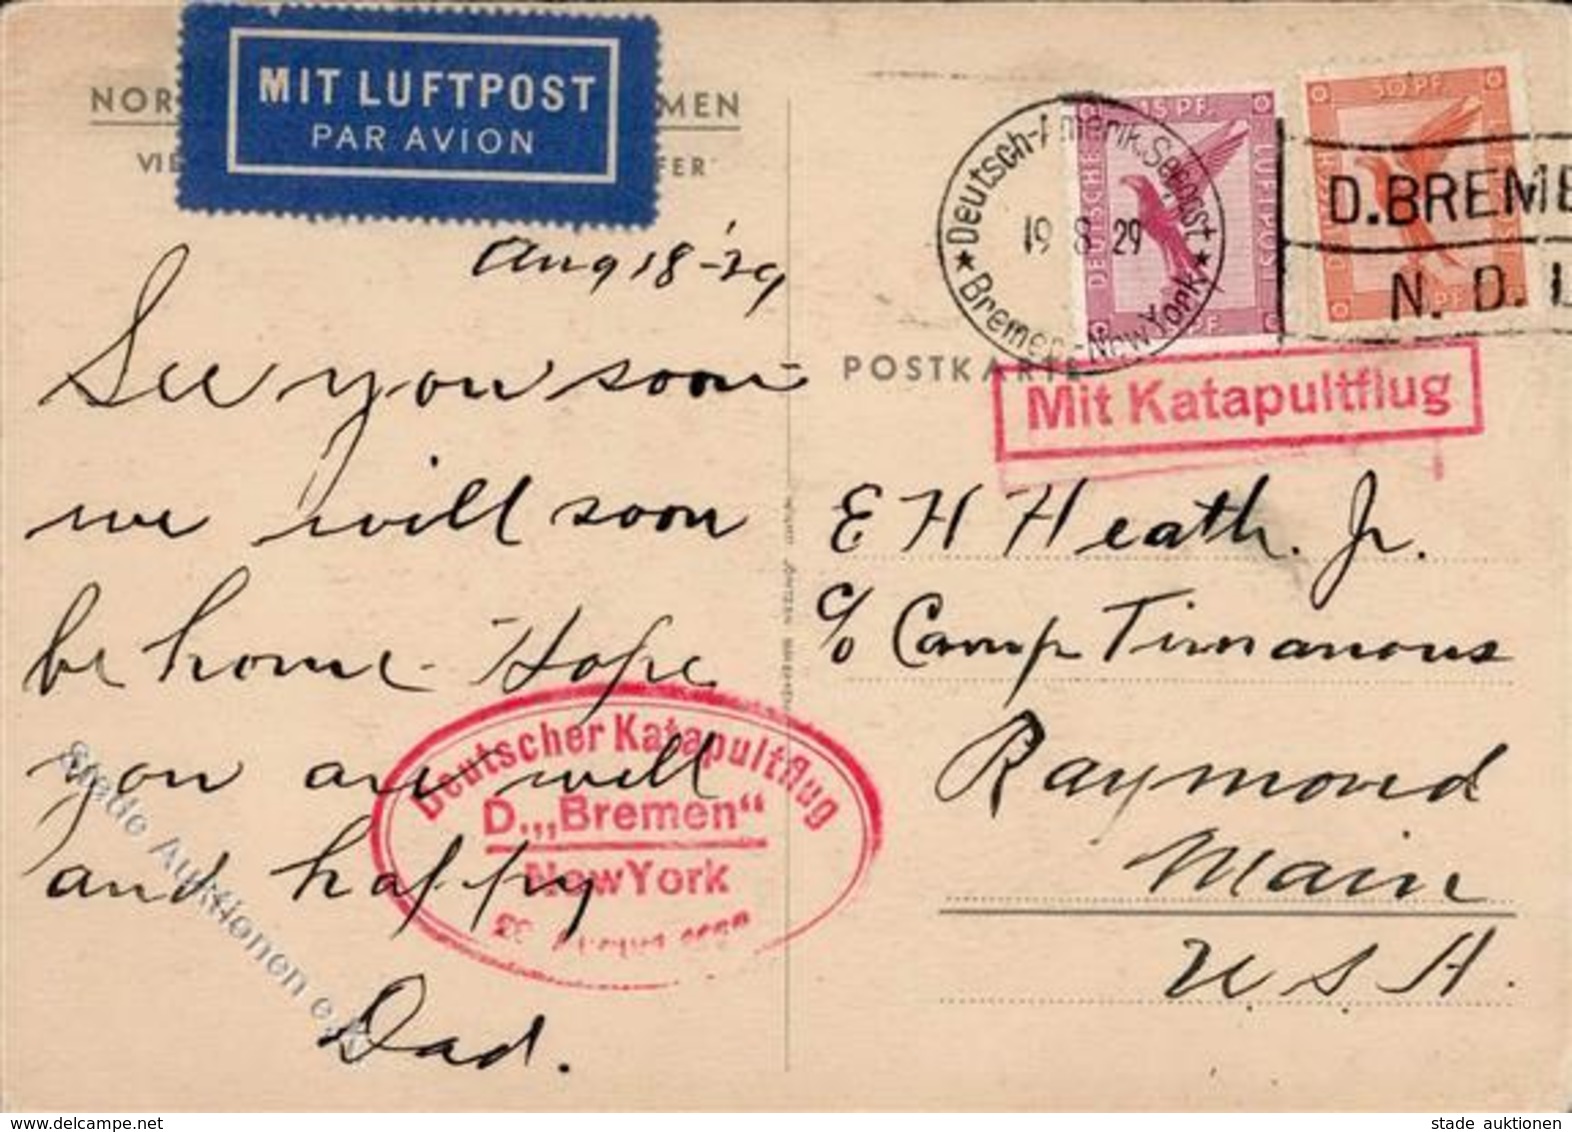 MIT LUFTPOST
PAR AVION
NOR MEN
VIE FER
Aug 18 - 29
See you soon -
we will soon
be home - Hope
you are well
and happy
Dad.
Deutsch-Amerik. Seepost
Bremen-New York
19 8 29
15 PF.
DEUTSCHE LUFTPOST
15 PF.
50 PF.
D. BREME
N. D. L
POSTKARTE
Mit Katapultflug
E H Heath. Jr.
c/o Camp Timanous
Raymond
Maine
U.S.A.
Deutscher Katapultflug
D. „Bremen“
New York
August
Stade Auktionen
delcampe.net
stade auktionen